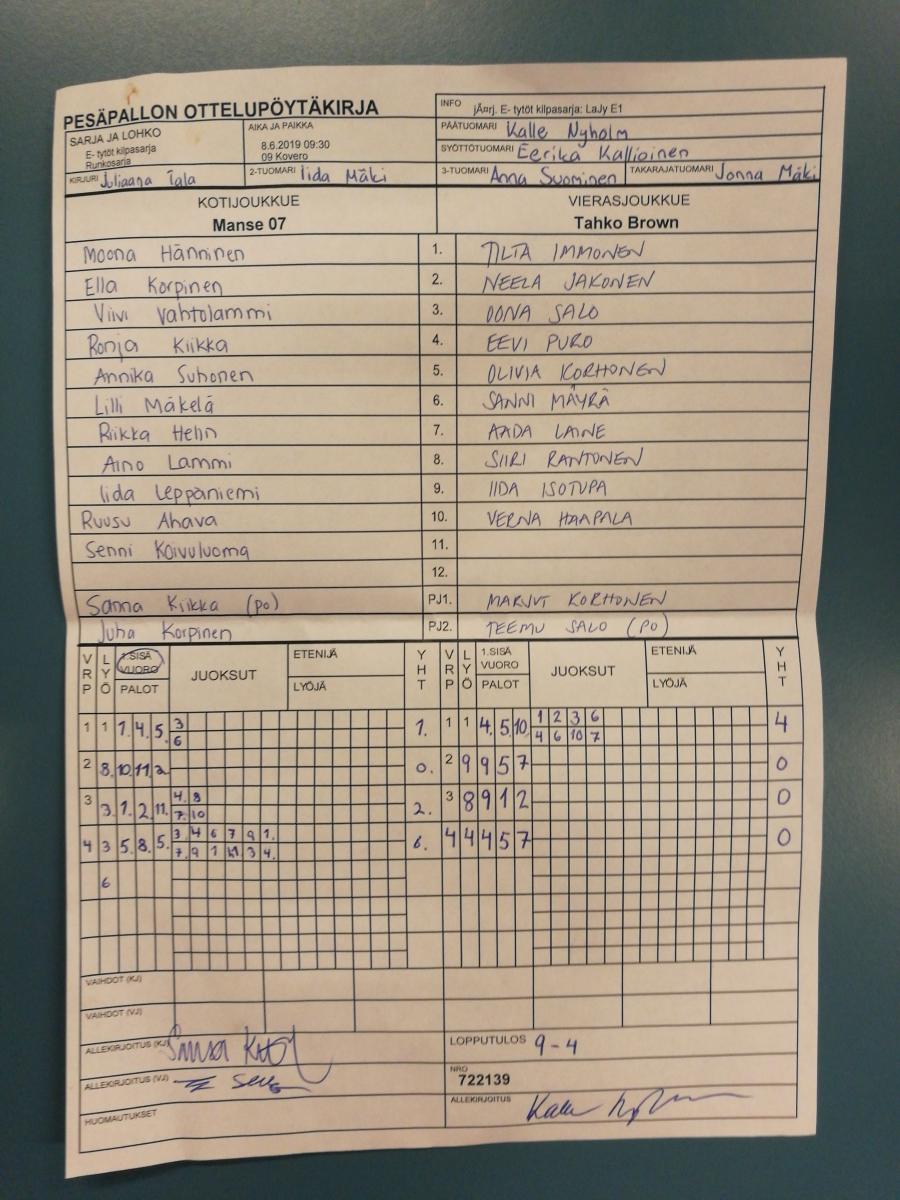 PESÄPALLON OTTELUPÖYTÄKIRJA
INFO jÃ¤rj. E- tytöt kilpasarja: LaJy E1
SARJA JA LOHKO
E- tytöt kilpasarja
Runkosarja
AIKA JA PAIKKA
8.6.2019 09:30
09 Kovero
PÄÄTUOMARI Kalle Nyholm
SYÖTTÖTUOMARI Eerika Kallioinen
KIRJURI Juliaana Tala 2-TUOMARI Iida Mäki 3-TUOMARI Anna Suominen TAKARAJATUOMARI Jonna Mäki
KOTIJOUKKUE VIERASJOUKKUE
Manse 07 Tahko Brown
Moona Hänninen 1. TILTA IMMONEN
Ella Korpinen 2. NEELA JAKONEN
Viivi Vahtolammi 3. OONA SALO
Ronja Kiikka 4. EEVI PURO
Annika Suhonen 5. OLIVIA KORHONEN
Lilli Mäkelä 6. SANNI MÄYRÄ
Riikka Helin 7. AADA LAINE
Aino Lammi 8. SIIRI RANTONEN
Iida Leppäniemi 9. IIDA ISOTUPA
Ruusu Ahava 10. VERNA HAAPALA
Senni Koivuluoma 11.
12.
Sanna Kiikka (po) PJ1. MARJUT KORHONEN
Juha Korpinen PJ2. TEEMU SALO (PO)
VRP LYÖ 1.SISÄ VUORO PALOT JUOKSUT ETENIJÄ LYÖJÄ YHT VRP LYÖ 1.SISÄ VUORO PALOT JUOKSUT ETENIJÄ LYÖJÄ YHT
1 1 1. 4. 5. 3 1. 1 1 4. 5. 10. 1 2 3 6 4
6 4 6 10 7
2 8. 10. 11. 2. 0. 2 9 9 5 7 0
3 3. 1. 2. 11. 4. 8 2. 3 8 9 1 2 0
7. 10
4 3 5. 8. 5. 3 4 6 7 9 1. 6. 4 4 4 5 7 0
7. 9 1 11 3 4.
6
VAIHDOT (KJ)
VAIHDOT (VJ)
ALLEKIRJOITUS (KJ) LOPPUTULOS 9-4
ALLEKIRJOITUS (VJ) NRO 722139
HUOMAUTUKSET ALLEKIRJOITUS